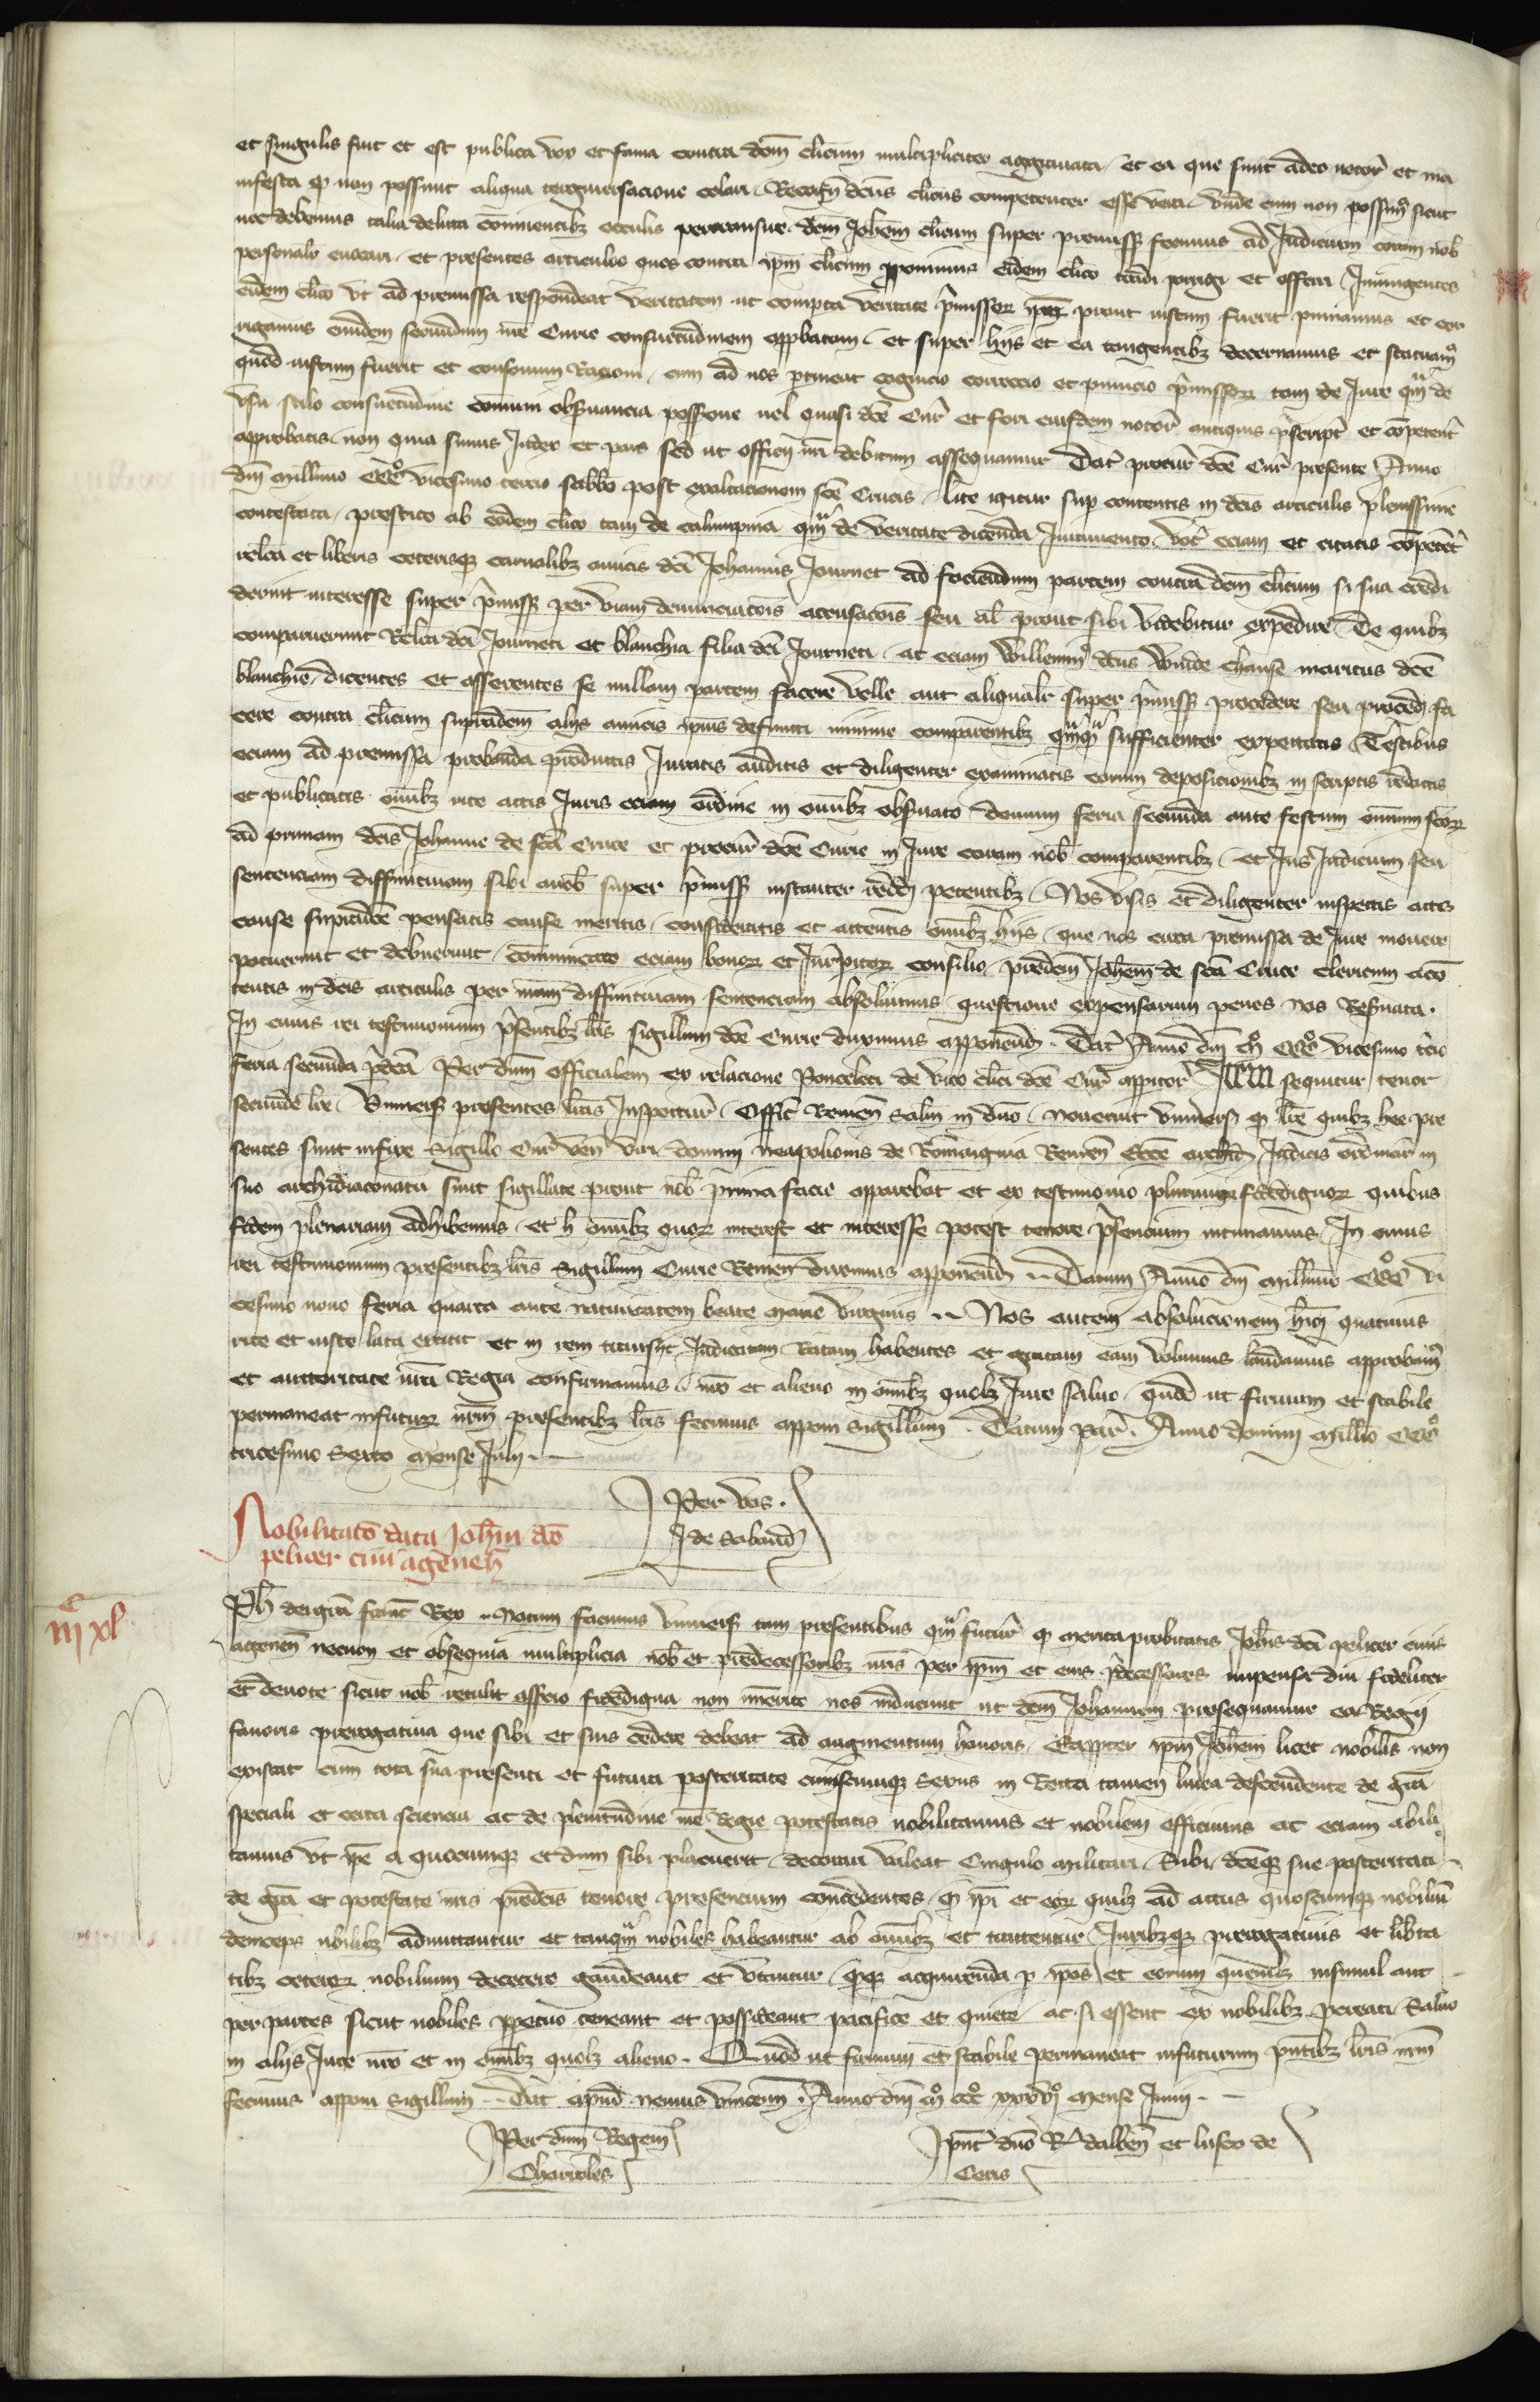 et singulis fuit et est publica vox et fama contra dcm clicum multipliciter aggravata et ea que sunt adeo notor et ma
nifesta qd non possunt aliqua tergiversacione celari dcus clicus competenter esse Unde cum non possimus sicut
nec debemus talia delicta conniventibz oculis pertransire dcm Johem clicum super premissis fecimus ad Judicium coram nob
personalr evocari et presentes articulos quos contra ipm clicum pponimus eidem clico tradi porrigi et offerri Iniungentes
eidem clico ut ad premissa respondeat veritatem ut comperta veritate pmissor ipm prout iustum fuerit puniamus et cor
rigamus eiusdem secundum nre Curie consuetudinem approbatam et super hiis et ea tangentibz decernamus et statuamus
quod iustum fuerit et consonum Racioni cum ad nos ptineat cognicio correccio et punicio pmissor tam de Jure qm de
usu stilo consuetudine communi observancia possessione vel quasi dce Cur et fori eiusdem notor antiquis pscript et competent
approbatis non quia simus Judex et pars sed ut officii nri debitum assequamur Dat procur dce Cur presente Anno
dni millimo CCCo vicesimo tercio sabbo post exaltacionem sce Crucis lite igitur sup contentis in dcis articulis plenissime
contestata prestito ab eodem clico tam de calumpnia qm de veritate dicenda Juramento vot eciam et citatis competent
relicta et liberis ceterisqz carnalibz amicis dci Johannis Journet ad faciendum partem contra dcm clicum si sua credi
derint interesse super pmissis per viam denunciacois accusacois seu al prout sibi videbitur expedire De quibz
comparuerunt Relicta dci Journeti et blanchia filia dci Journeti ac eciam Willermus dcus maritus dce
blanchie dicentes et asserentes se nullam partem facere velle aut aliqualr super pmissis procedere seu fa
cere contra clicum supradcm aliis amicis ipius defuncti minime comparentibz qmqm sufficienter expectatis Testibus
eciam ad premissa probanda productis Juratis auditis et diligenter examinatis eorum deposicionibz in scriptis redactis
et publicatis omibz rite actis Juris eciam ordine in omibz observato demum feria secunda ante festum omnium scor
ad primam dcis Johanne de sca Cruce et procur dce Curie in Jure coram nob comparentibz et Jus Judicium seu
sentenciam diffinitivam sibi anob super pmissis instanter reddi petentibz Nos visis et diligenter inspectis actis
cause supradce pensatis cause meritis consideratis et attentis omibz hiis que nos circa premissa de Jure movere
potuerunt et debuerunt communicato eciam bonor et Jurispitor consilio predcm Johem de sca Cruce clericum acon
tentis in dcis articulis per nram diffinitivam sentenciam absolvimus questione expensarum penes nos Reservata
In cuius rei testimonium psentibz lris sigillum dce Curie duximus apponend Dat Anno dni mo CCCo vicesimo tcio
feria secunda pdca Per dnm officialem ex relacione Ponceleti de vico clici dce Cur Item sequitur tenor
secunde lre Universis presentes lras Inspectur Offic Remen salm in dno Noverint universi qd lre quibz hee pre
sentes sunt infixe sigillo Cur ven viri domini neapolionis de Romangnia Remen Ecce archid Judicis ordinar in
suo archidiaconatu sunt sigillate prout nob prima facie apparebat et ex testimonio plurimor fidedignor quibus
fidem plenariam adhibemus et h omibz quor interest et interesse potest tenore psencium intimamus In cuius
rei testimonium presentibz lris sigillum Curie Remen duximus apponend Datum Anno dni millimo CCCo vi
cesimo nono feria quarta ante nativitatem beate marie virginis Nos autem absolucionem hmoi quatinus
rite et iuste lata extitit et in rem transiit Judicatam Ratam habentes et gratam eam volumus laudamus approbamus
et auctoritate nra Regia confirmamus nro et alieno in omibz quolz Jure salvo quod ut firmum et stabile
permaneat infuturum nrm presentibz lris fecimus apponi sigillum Datum Par Anno domini millio CCCo
tricesimo sexto mense Julii
Per vos
J de Sabaud
Nobilitato data Johni dco
pelicer civi agenen
iiic xl
Ph dei gra franc Rex Notum facimus Universis tam presentibus qm futur qd merita probitatis Johis dci pelicer civis
agenen necnon et obsequia multiplicia nob et predecessoribz nris per ipm et eius pdecessores impensa diu fideliter
et devote sicut nob retulit asserco fidedigna non imerito nos inducunt ut dcm Johannem prosequamur ea Regii
favoris prerogativa que sibi et suis cedere debeat ad augmentum honoris Eappter ipm Johem licet nobilis non
existat cum tota sua presenti et futura posteritate cuiuscumqz sexus in Recta tamen linea descendente de gra
speciali et certa sciencia ac de plenitudine nre Regie potestatis nobilitamus et nobilem efficimus ac eciam abili
tamus ut ipe a quocumqz et dum sibi placuerit decorari valeat Cingulo militari Sibi dceqz sue posteritati
de gra et potestate nris predcis tenore presencium concedentes qd ipi et eor quilz ad actus quoscumqz nobilium
deinceps nobilibz admittantur et tanqm nobiles habeantur ab omibz et tractentur Juribzqz prerogativis et liberta
tibz ceteror nobilium decetero gaudeant et utantur acquirenda p ipos et eorum quemlibz insimul aut
per partes sicut nobiles ppetuo teneant et possideant pacifice et quiete ac si essent ex nobilibz pcreati Salvo
in aliis Jure nro et in omibz quolz alieno Quod ut firmum et stabile permaneat infuturum pntibz lris nrm
fecimus apponi sigillum Dat apud nemus vincenn Anno dni mo CCCo xxxvio mense Junii
Per dnm Regem
Charrolles
pnt dno R dalben et lusco de
Cetis